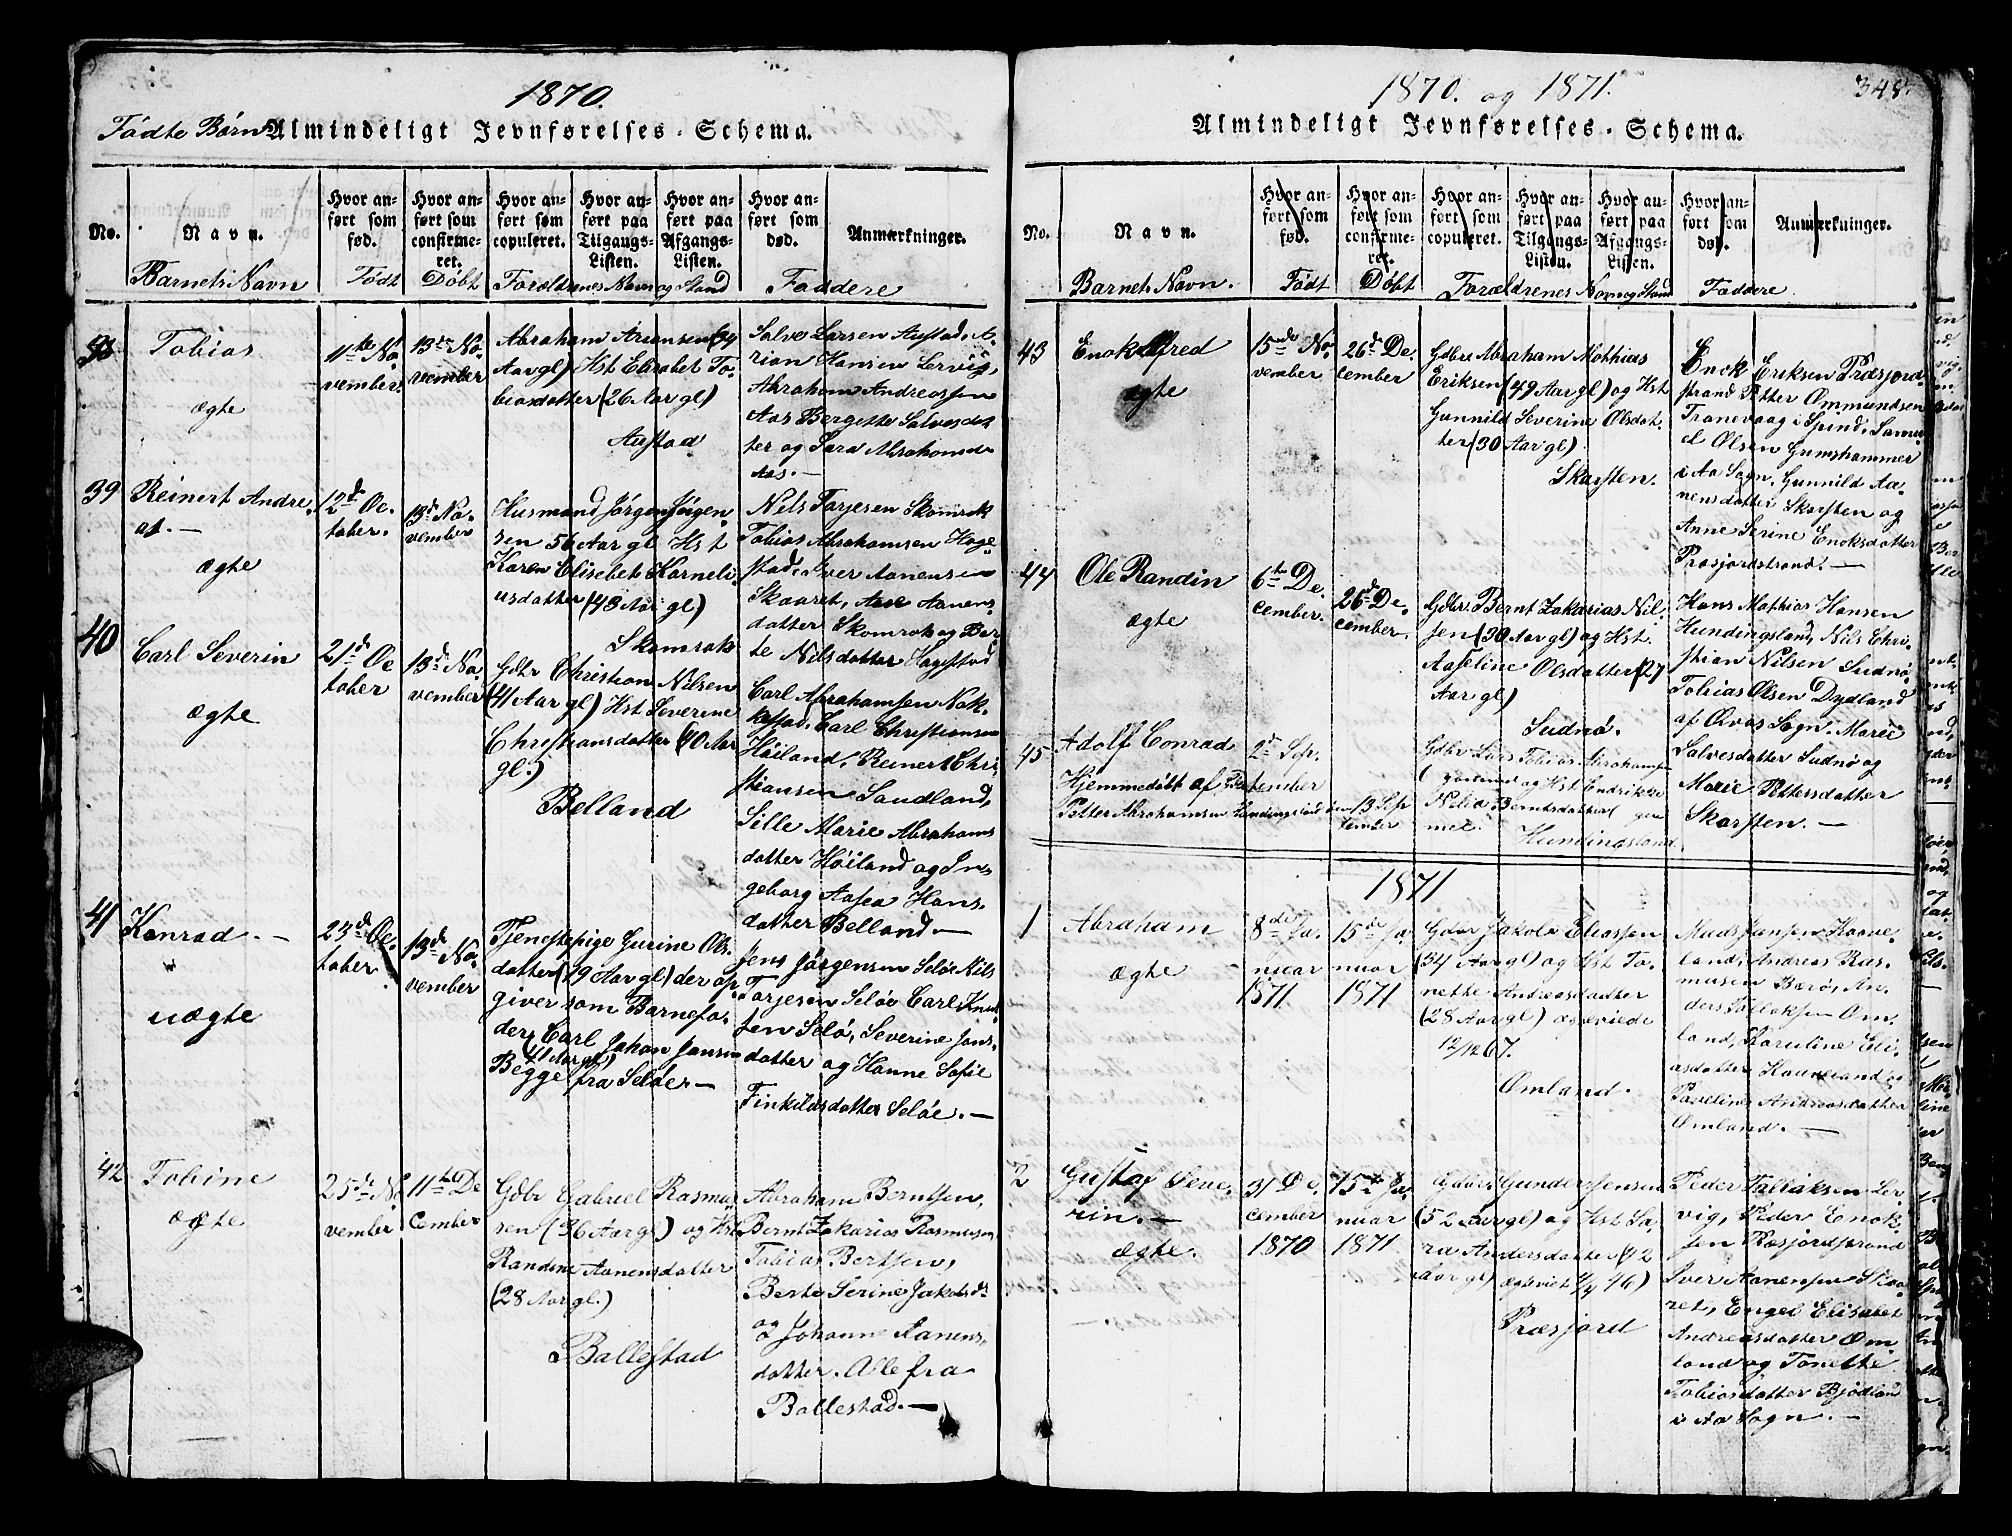 1870.
Fødte Børn Almindeligt Jevnførelses-Schema.
No.
Navn.
Hvor an-
ført som
fød.
Hvor an-
ført som
confirme-
ret.
Hvor an-
ført som
copuleret.
Hvor an-
ført paa
Tilgangs-
Listen.
Hvor an-
ført paa
Afgangs-
Listen.
Hvor an-
ført som
død.
Anmærkninger.
Barnets Navn
Født
Døbt
Forældrenes Navn og Stand
Faddere
38
Tobias
ægte
11te No
vember
13de No-
vember
Abraham
Aar gl) Hst Elisabet To-
biasdatter (26 Aar gl)
Austad
Salve Larsen Austad, A-
rian Hansen Lervig,
Abraham Andreassen
Aas Bergette Salvesdat
ter og Sara Abrahamsd
Aas.—
39
Reinert Andre-
as.—
ægte
12de Oc-
tober.
13de No-
vember
Husmand Jørgen Jørgen-
sen 56 Aar gl Hst
Karen Elisebet Korneli-
usdatter (43 Aar gl)
Skomrak
Nils Torjesen Skomrak
Tobias Abrahamsen Hage-
stad, Iver Aanensen
Skaaret, Aase Aanens-
datter Skomrak og Ber-
te Nilsdatter Hagestad
40
Carl Severin
ægte
21de Oc
tober
13de No-
vember
Gdbr Christian Nilsen
(41 Aar gl) Hst Severine
Christiansdatter (40 Aar
gl.)
Belland
Carl Abrahamsen Nak-
kestad, Carl Christiansen
Høiland, Reinert Chri-
stiansen Sandland,
Sille Marie Abrahams
datter Høiland og In-
geborg Aasea Hans-
datter Belland.—
41
Konrad.—
uægte
23de Oc-
tober
13de No-
vember
Tjenestepige Gurine Ols
datter (19 Aar gl) der op-
giver som Barnefa-
der Carl Johan Jansen
(41 Aar gl)
Begge fra Seløe—
Jens Jørgensen Seløe Nils
Torjesen Seløe Carl Knud
sen Seløe, Severine Jans-
datter og Hanne Sofie
Finkilsdatter Seløe.—
42
Tobine
ægte
25de No
vember
11te De
cember
Gdbr Gabriel Rasmus-
sen (36 Aar gl) og Hst
Randine Aanensdatter
(28 Aar gl.)
Ballestad
Abraham Berntsen,
Bernt Zakarias Rasmusen
Tobias Bertsen,
Berte Serine Jakobsdr
og Johanne Aanens-
datter. Alle fra
Ballestad.—
1870. og 1871.
348.
Almindeligt Jevnførelses-Schema.
No.
Navn.
Hvor an-
ført som
fød.
Hvor an-
ført som
confirme-
ret.
Hvor an-
ført som
copuleret.
Hvor an-
ført paa
Tilgangs-
Listen.
Hvor an-
ført paa
Afgangs-
Listen.
Hvor an-
ført som
død.
Anmærkninger.
Barnets Navn.
Født
Døbt
Forældrenes Navn og Stand
Faddere
43
Enok Alfred
ægte
15nde No-
vember
26de De-
cember
Gdbr Abraham Mathias
Eriksen (49 Aar gl) og Hst
Gunnild Severine Olsdat-
ter (30 Aar gl)
Skarsten.
Enok Eriksen Præsjord-
strand Petter Ommundsen
Tranevaag i Spind, Samu-
el Olsen Gumshammer
i Aa Sogn, Gunnild Aa-
nensdatter Skarsten og
Anne Serine Enoksdatter
Præsjordstrand.—
44
Ole Randin
ægte
6te De-
cember.
25de De-
cember.
Gdbr. Bernt Zakarias Nil-
sen (30 Aar gl) og Hst
Aaseline Olsdatter (27
Aar gl)
Sudnø.
Hans Mathias Hansen
Hundingsland, Nils Chri-
stian Nilsen Sudnø,
Tobias Olsen Dydland
af Qvas Sogn. Marie
Salvesdatter Sudnø og
Marie Pettersdatter
Skarsten.—
45
Adolf Conrad
Hjemmedøbt af
Petter Abrahamsen Hundingsland den 13 Sep
tember
2de Sep-
tember
Gdbr Lars Tobias Abrahamsen
og Hst Endrikke
Nilia Berntsdatter
Hundingsland
1871
1
Abraham
ægte
8de Ja-
nuar
1871
15de Ja-
nuar
1871
Gdbr Jakob Eliassen
(34 Aar gl) og Hst To-
nette Andreasdatter
(28 Aar gl) ægteviede
12/12 67.
Omland.
Mads Jansen Haave-
land, Andreas Ras-
musen Barø, An-
ders Tollaksen Om-
land, Karuline Eli-
asdatter Haaveland og
Paveline Andreasdatter
Omland.—
2
Gustaf Seve-
rin.—
ægte.
31 De-
cember
1870
15de Ja-
nuar
1871
Gdbr. Gunder Jensen
(52 Aar gl) og Hst Sa-
ra Andersdatter (42
Aar gl) ægteviet 4/4 46)
Præsjord
Peder Tollaksen Ler-
vig, Peder Enok-
sen Præsjordstrand
Iver Aanensen Skaa-
ret, Engel Elisabet
Andreasdatter Om-
land og Tonette
Tobiasdatter Bjødland
i Aa Sogn.—